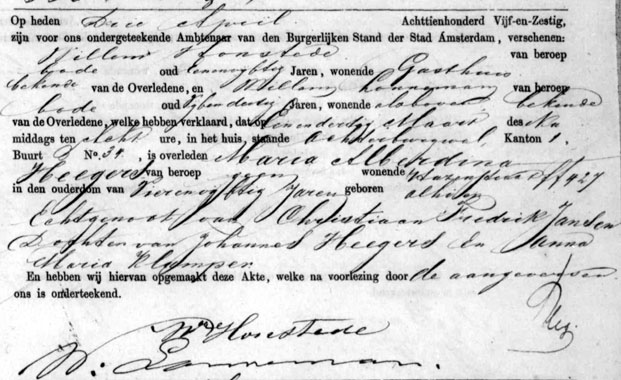 Op heden Drie April Achttienhonderd Vijf-en-Zestig,
zijn voor ons ondergeteekende Ambtenaar van den Burgerlijken Stand der Stad Amsterdam, verschenen:
Willem Honstede van beroep
bode oud eenenvijftig Jaren, wonende Gasthuis
bekende van de Overledene, en Willem Lanneman van beroep
bode oud Jaren, wonende als boven bekende
van de Overledene, welke hebben verklaard, dat op eenendertig Maart des Na
middags ten acht ure, in het huis, staande Achterburgwal, Kanton 1.
Buurt 3 No. 34. is overleden Maria Alberdina
Heegers van beroep geen wonende ff 427
in den ouderdom van Vierenvijftig Jaren geboren alhier
Echtgenoot van Christiaan Fredrik Jansen
Dochter van Johannes Heegers En Anna
Maria Klymper
En hebben wij hiervan opgemaakt deze Akte, welke na voorlezing door de aangevers en
ons is onderteekend.
Wm Honstede
W. Lanneman.